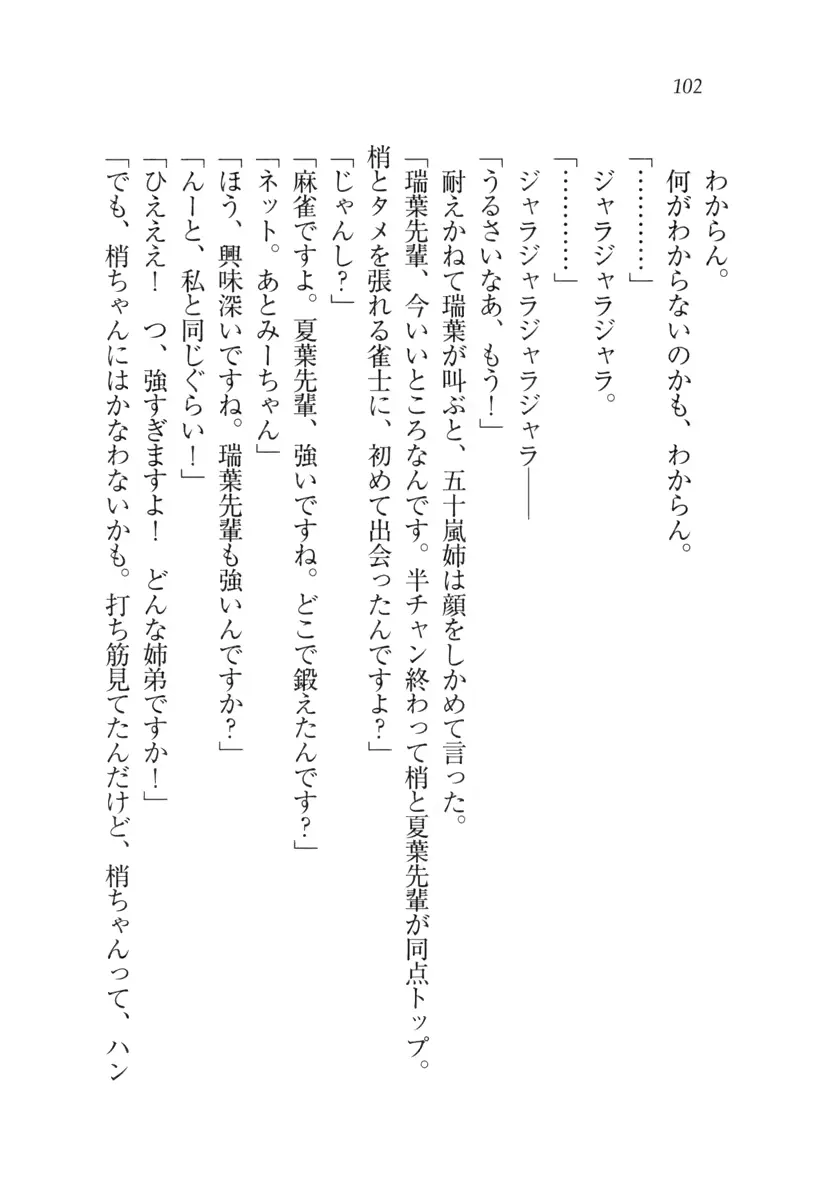 102
わからん。
何がわからないのかも、わからん。
「…………」
ジャラジャラジャラ。
「…………」
ジャラジャラジャラジャラ――
「うるさいなあ、もう！」
耐えかねて瑞葉が叫ぶと、五十嵐姉は顔をしかめて言った。
「瑞葉先輩、今いいところなんです。半チャン終わって梢と夏葉先輩が同点トップ。
梢とタメを張れる雀士に、初めて出会ったんですよ？」
「じゃんし？」
「麻雀ですよ。夏葉先輩、強いですね。どこで鍛えたんです？」
「ネット。あとみーちゃん」
「ほう、興味深いですね。瑞葉先輩も強いんですか？」
「んーと、私と同じぐらい！」
「ひえええ！　つ、強すぎますよ！　どんな姉弟ですか！」
「でも、梢ちゃんにはかなわないかも。打ち筋見てたんだけど、梢ちゃんって、ハン